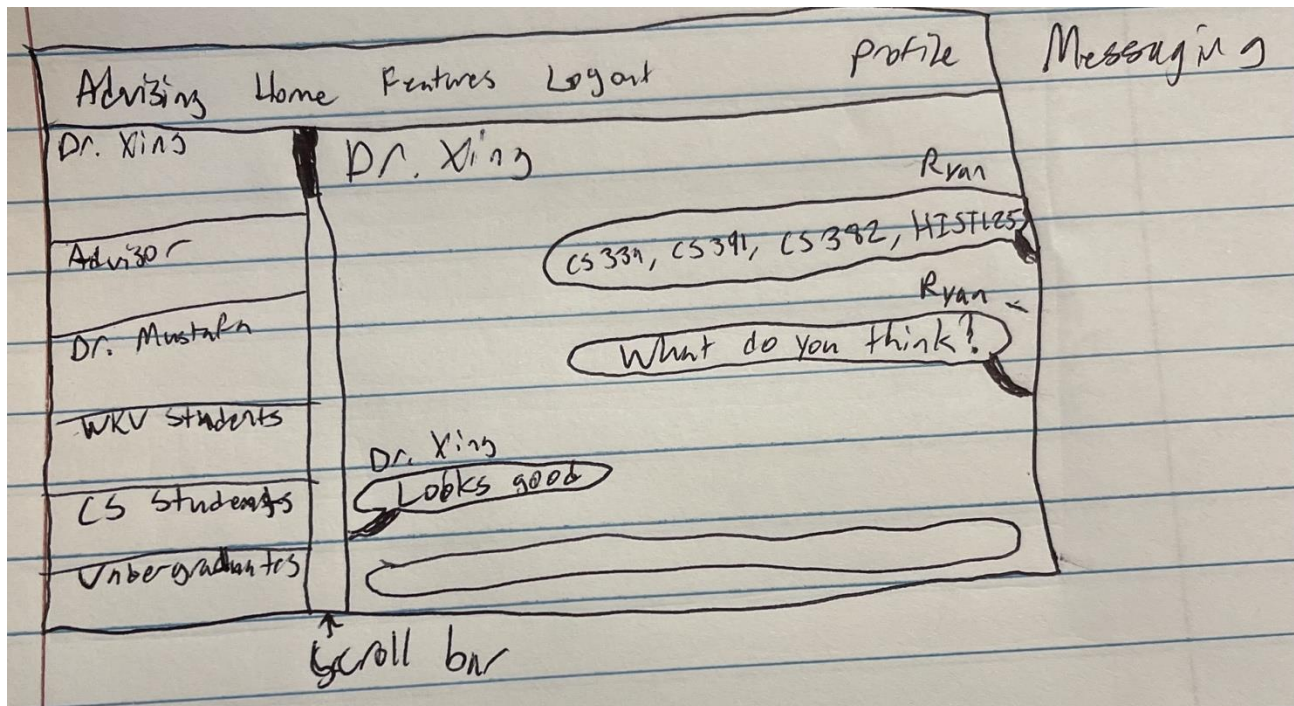 Messaging
Advising Home Features Logout Profile
Dr. Xing
Advisor
Dr. Mustafa
WKU Students
CS Students
Unbergraduates
Dr. Xing
Ryan
CS 339, CS 391, CS 382, HIST125
Ryan
What do you think?
Dr. Xing
Looks good
Scroll bar